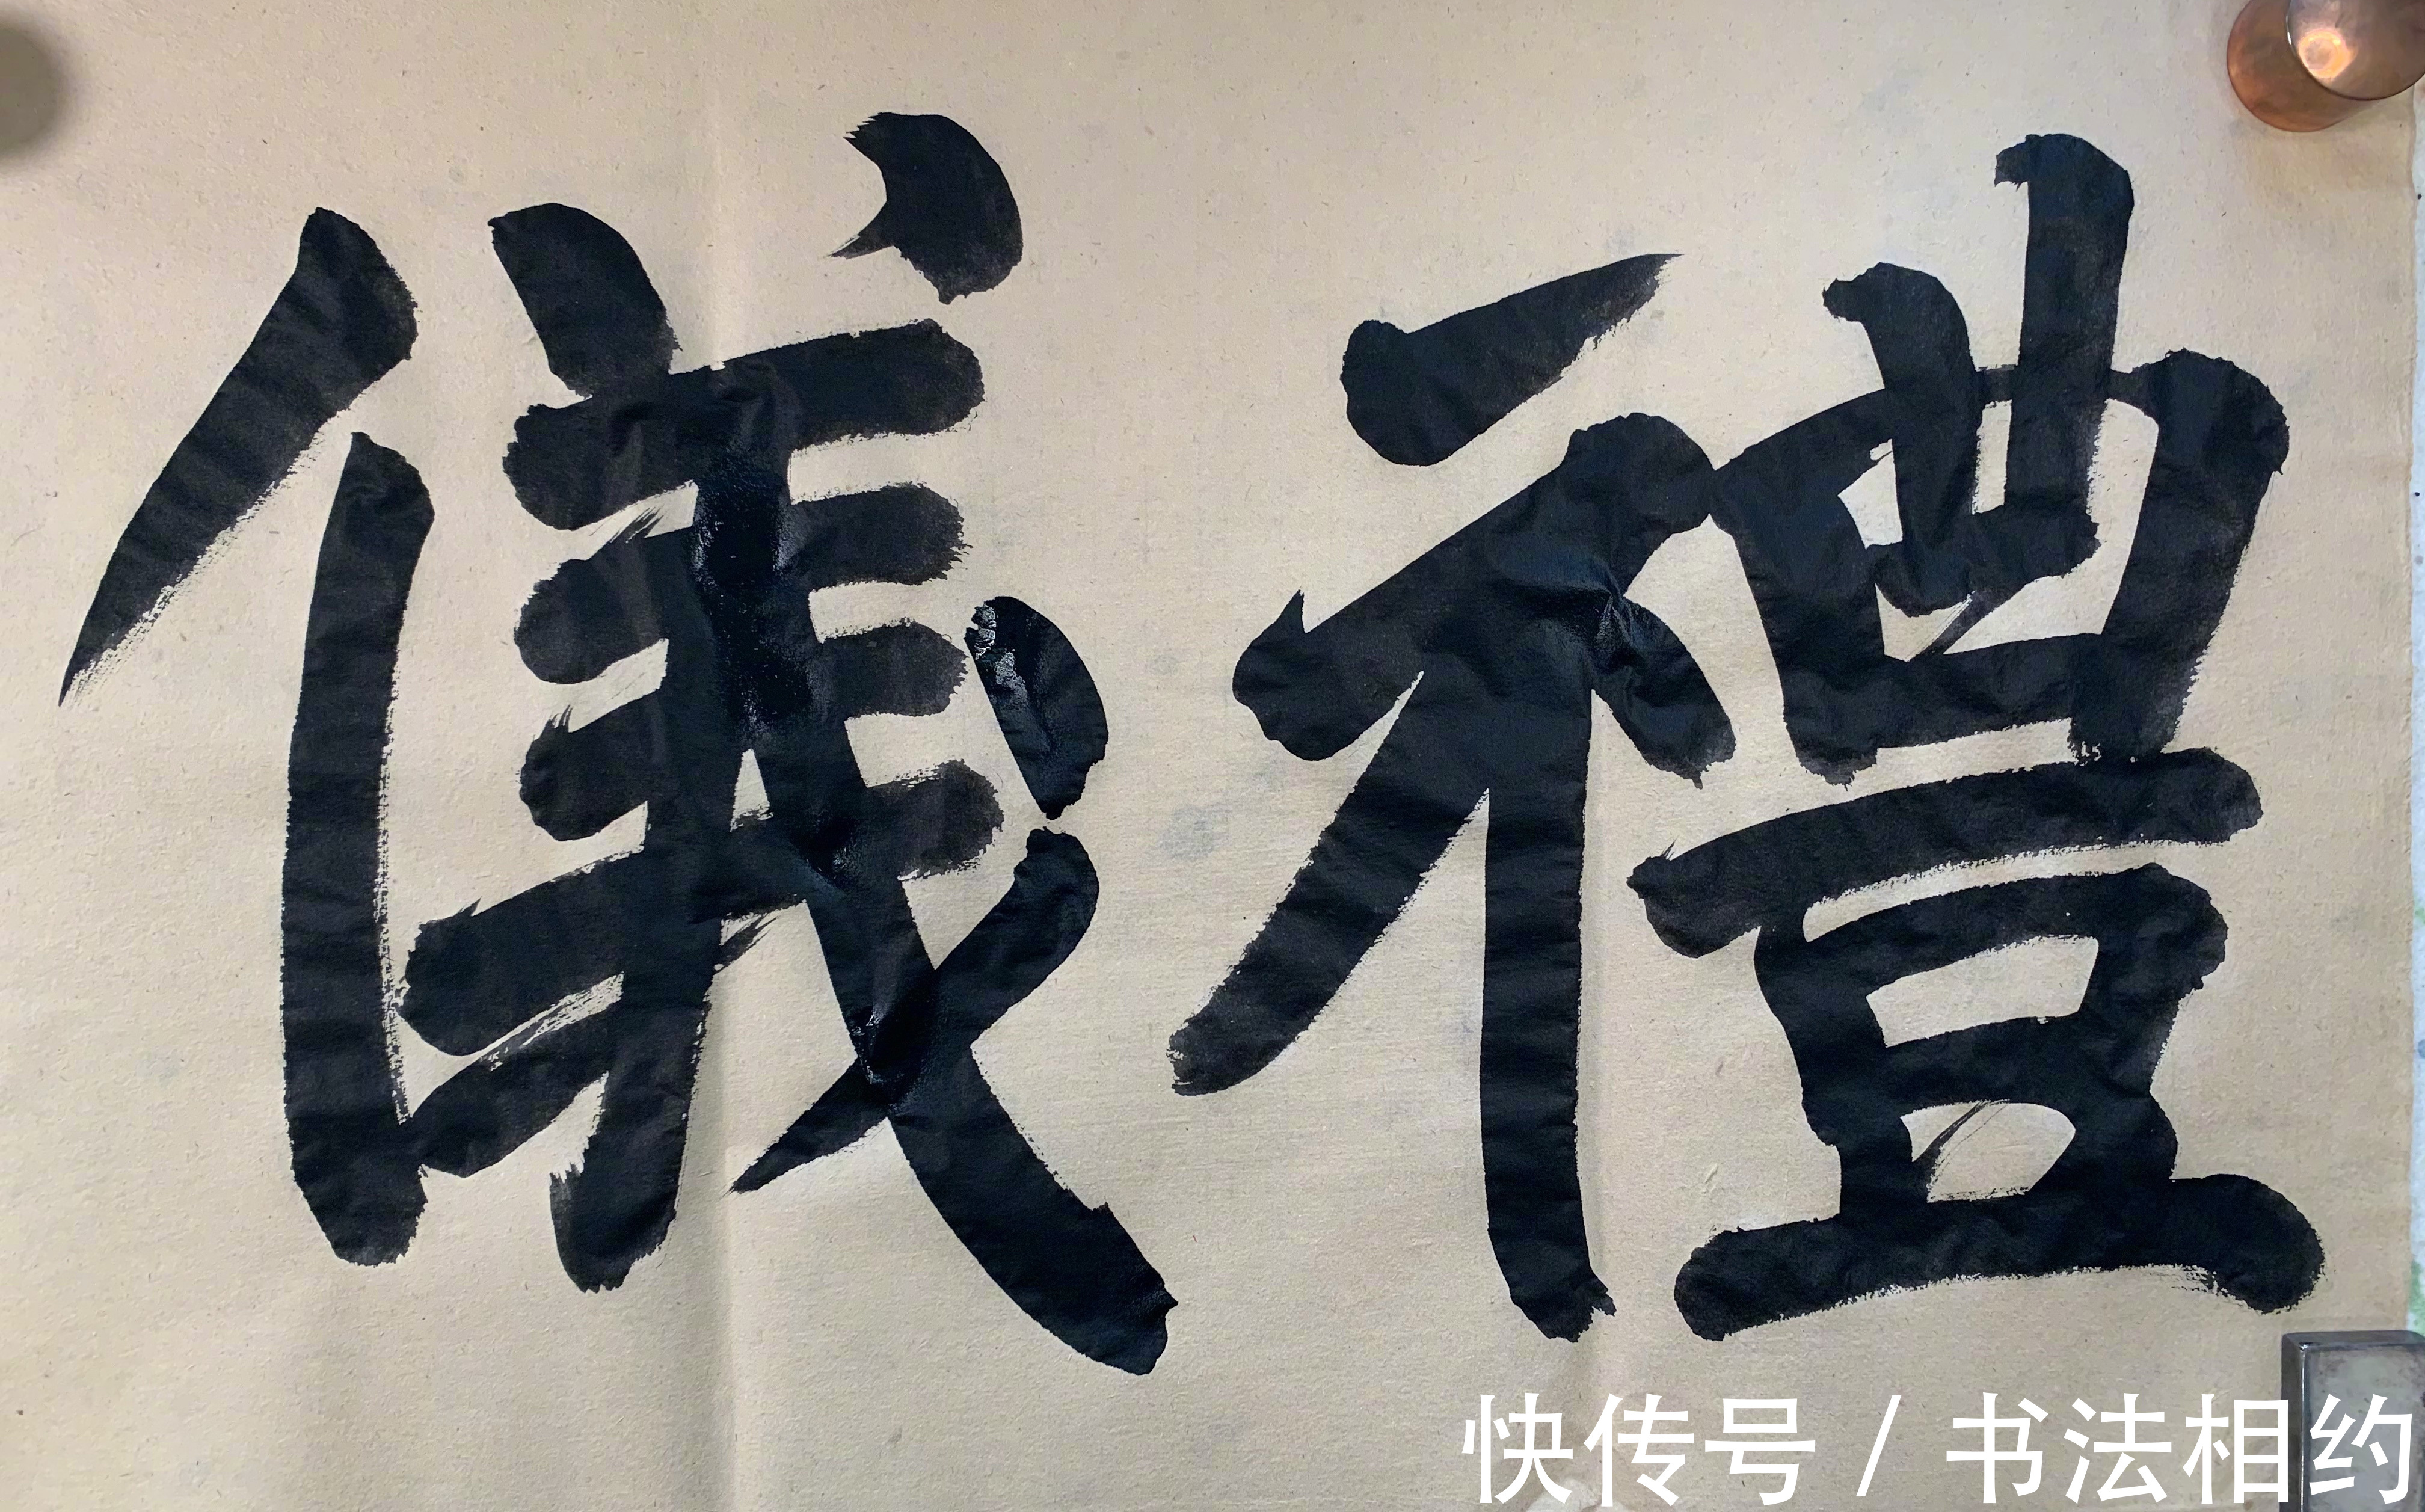 禮儀
快传号 / 书法相约